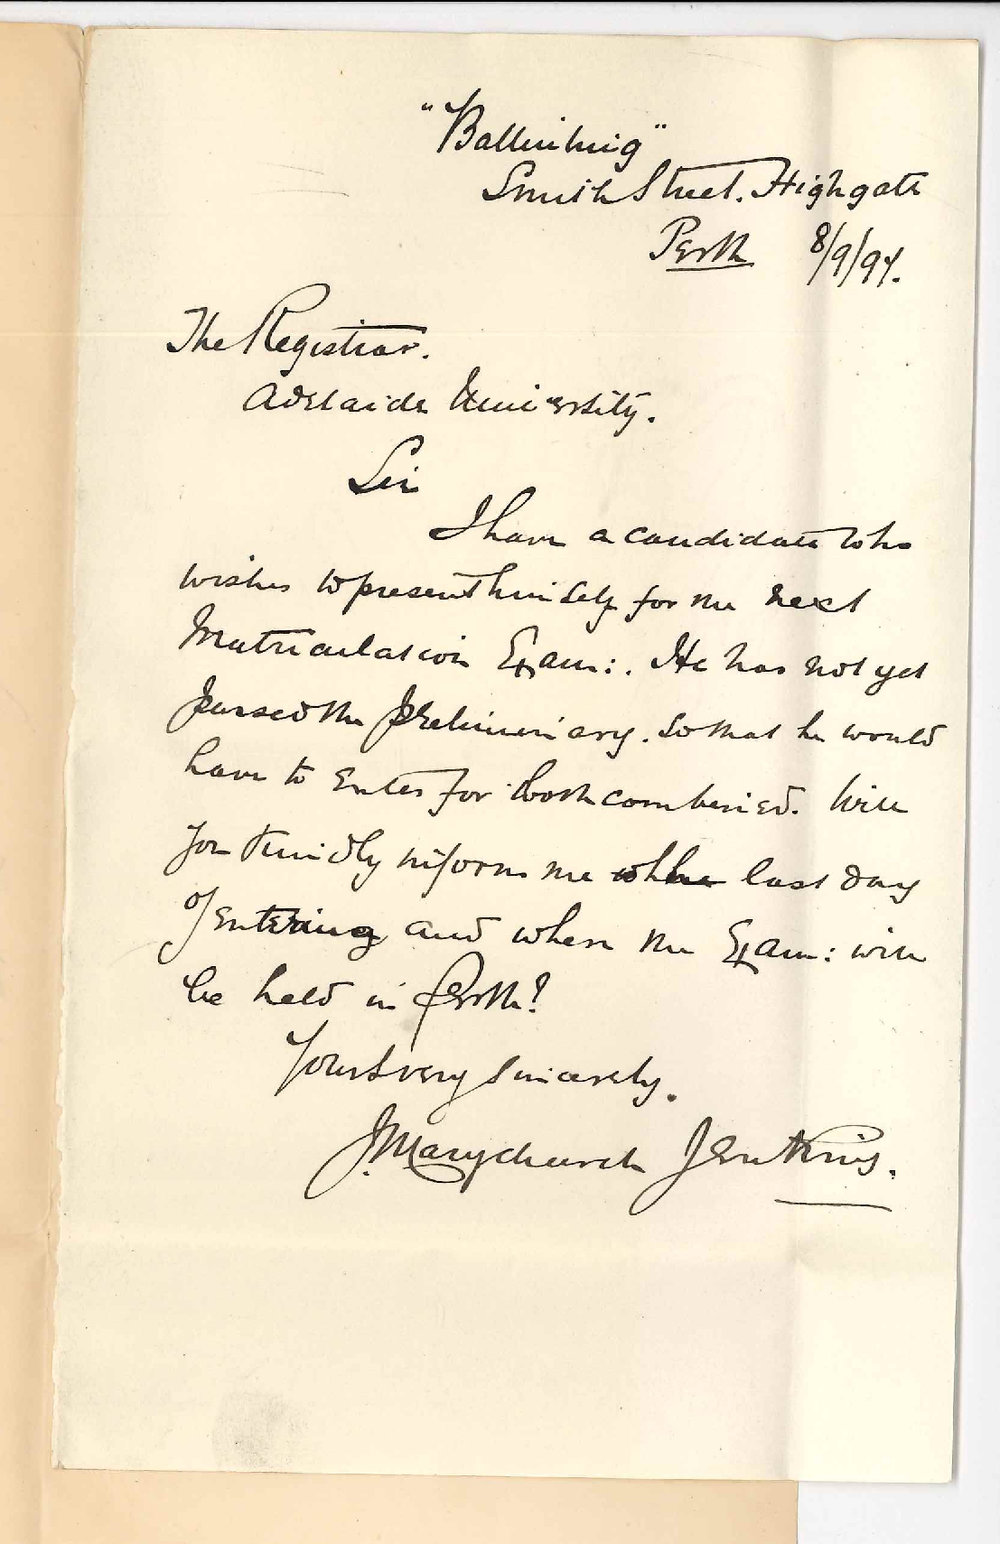 Smith Street. Highgate
Perth 8/9/97.
The Registrar.
Adelaide University.
Sir
I have a candidate who
wishes to present himself for the next
Matriculation Exam:. He has not yet
passed the Preliminary. So that he would
have to enter for both combined. Will
you kindly inform me last day
of entering and where the Exam: will
be held in Perth?
Yours very sincerely.
J. Marychurch Jenkins.